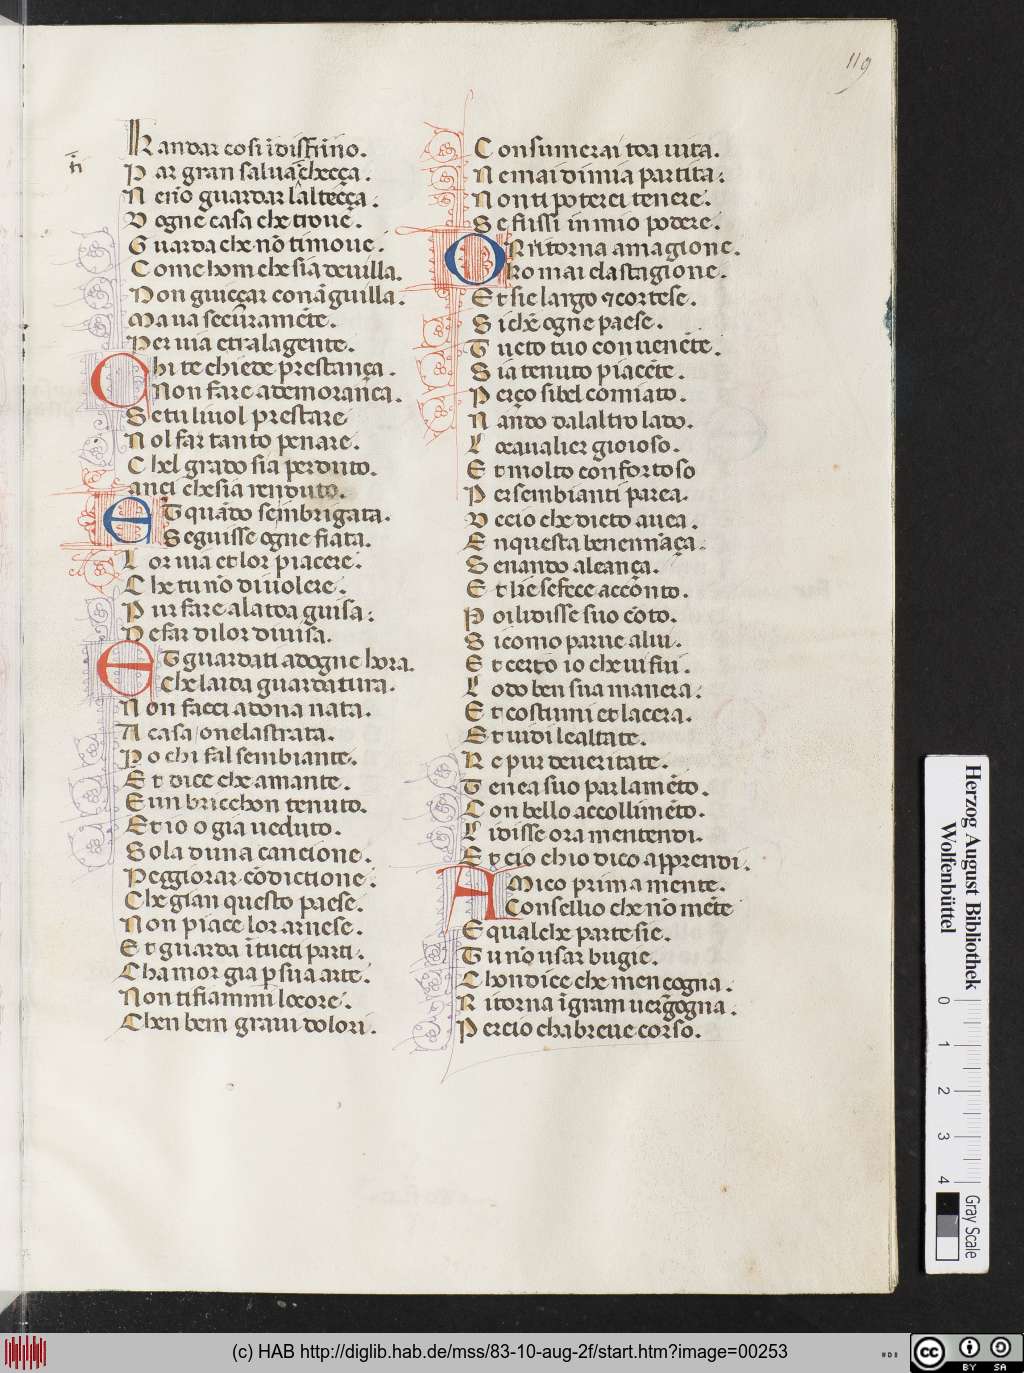 119
Kandar cosi ĩdisfrĩno.
Par gran saluãchecça.
Nerĩo guardar laltecça.
D ogne casa che troue.
Guarda che nõ timoue.
Come hom che sia deuilla.
Non guiccar conãguilla.
Maua secũramẽte.
Per uia etralagente.
Chi te chiede prestança.
Non fare ademorança.
Setu liuol prestare
Nol far tanto penare.
Chel grado sia perduto.
anci chesia renduto.
ET quãdo sembrigata.
Seguisse ogne fiata.
Lor uia et lor piacere.
Che tu nõ diuolere.
Pur fare alatoa guisa.
Ne far dilor diuisa.
ET guardati adogne hora.
Che laida guardatura.
Non facci adona nata.
A casa / onelastrata.
Po chi fal sembiante.
Et dice che amante.
Eun bricchon tenuto.
Et io o gia ueduto.
Sola duna cancione.
Peggiorar cõdictione.
Che gian questo paese.
Non piace lor arnese.
Et guarda ĩtucti parti.
Chamor gia p sua arte.
Non tifiammi locore.
Chen bem graui dolori.
Consumerai toa uita.
Nemai dimia partita.
Non ti poterei tenere.
Se fussi in mio podere.
OR ritorna amagione.
Ro mai elastagione.
Et sie largo ⁊ cortese.
Si chẽ ogne paese.
Tucto tuo conuenẽte.
Sia tenuto piacẽte.
Perço sibel comiato.
Nãdo dalaltro lado.
Loeaualier gioioso.
Et molto confortoso
Per sembianti parea.
D ccio che dicto auea.
Enquesta benennãça.
Senando aleança.
Et lie sefece accõnto.
Poi lidisse suo cõto.
Sicomo parue alui.
Et certo io che ui fui.
Lodo ben sua manera.
Et costumi et lacera.
Et uidi lealtate.
Re pur deueritate.
Tenea suo parlamẽto.
Con bello accollimẽto.
Lidisse ora mentendi.
Et cio chio dico apprendi.
AMico prima mente.
Consellio che nõ mẽte
Equalche parte sie.
Tu nõ usar bugie.
Chondice che mencogna.
Ritorna ĩ gram uergogna.
Percio cha breue corso.
Herzog August Bibliothek
Wolfenbüttel
0 1 2 3 4
Gray Scale
(c) HAB http://diglib.hab.de/mss/83-10-aug-2f/start.htm?image=00253
cc BY SA